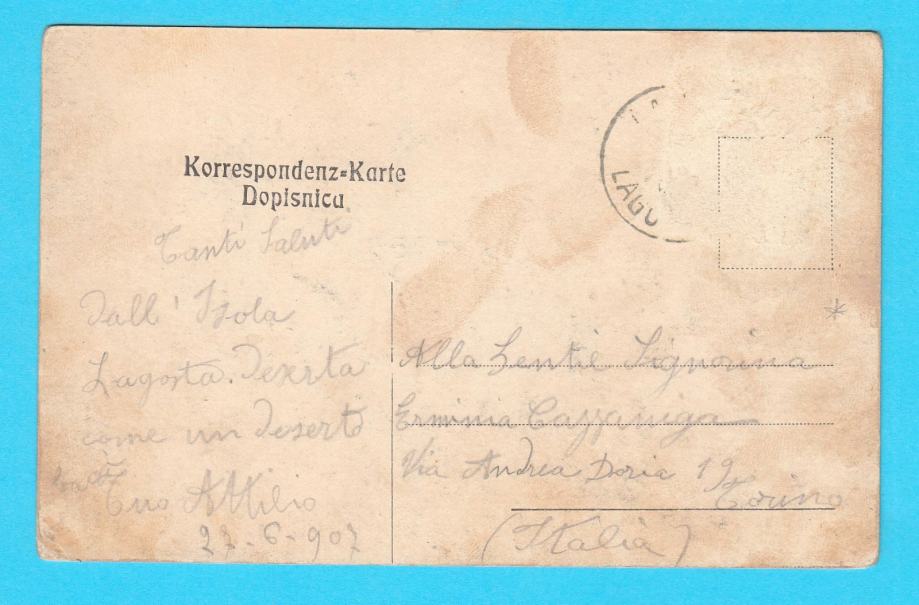 Korrespondenz=Karte
Dopisnica
LAGO
Tanti Saluti
dall' Isola
Lagosta. Deserta
come un deserto
Tuo Attilio
27-6-907
Alla Gentil Signorina
Erminia Cazzaniga
Via Andrea Doria 19
Torino
(Italia)